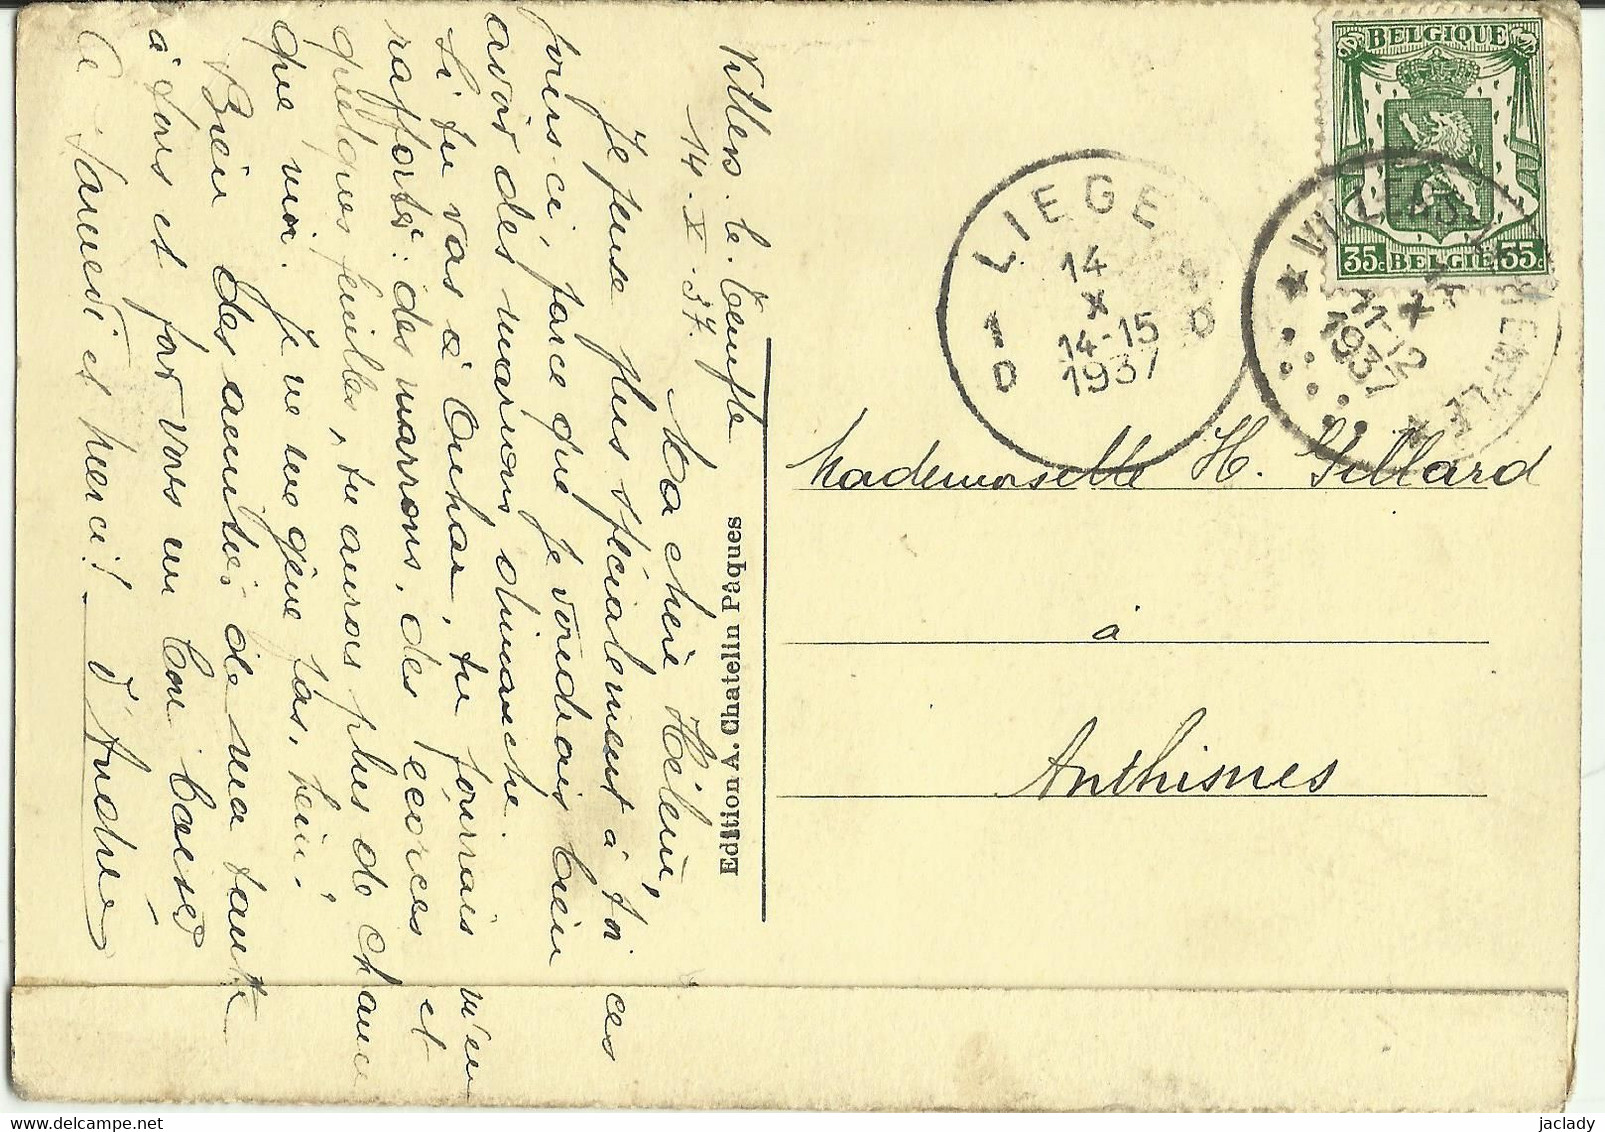 Villers. le. Temple
14. X. 37.
Ma chère Hélène,
Je pense plus spécialement à toi ces
jours-ci, parce que je voudrais bien
avoir des marrons dimanche.
Si tu vas à Ouhar, tu pourrais m'en
rapporter: des marrons, des écorces et
quelques feuilles, tu auras plus de chance
que moi. Je ne me gêne pas, hein!
Bien des amitiés de ma tante
à tous et pour vous un bon baiser
à samedi et merci! d'Andrée
Edition A. Chatelin Pâques
BELGIQUE
35c BELGIË 35c
LIEGE
14
X
14-15
1937
1 D
1 D
VILLERS-LE-TEMPLE
14
X
11-12
1937
Mademoiselle H. Gillard
à
Anthisnes
jaclady